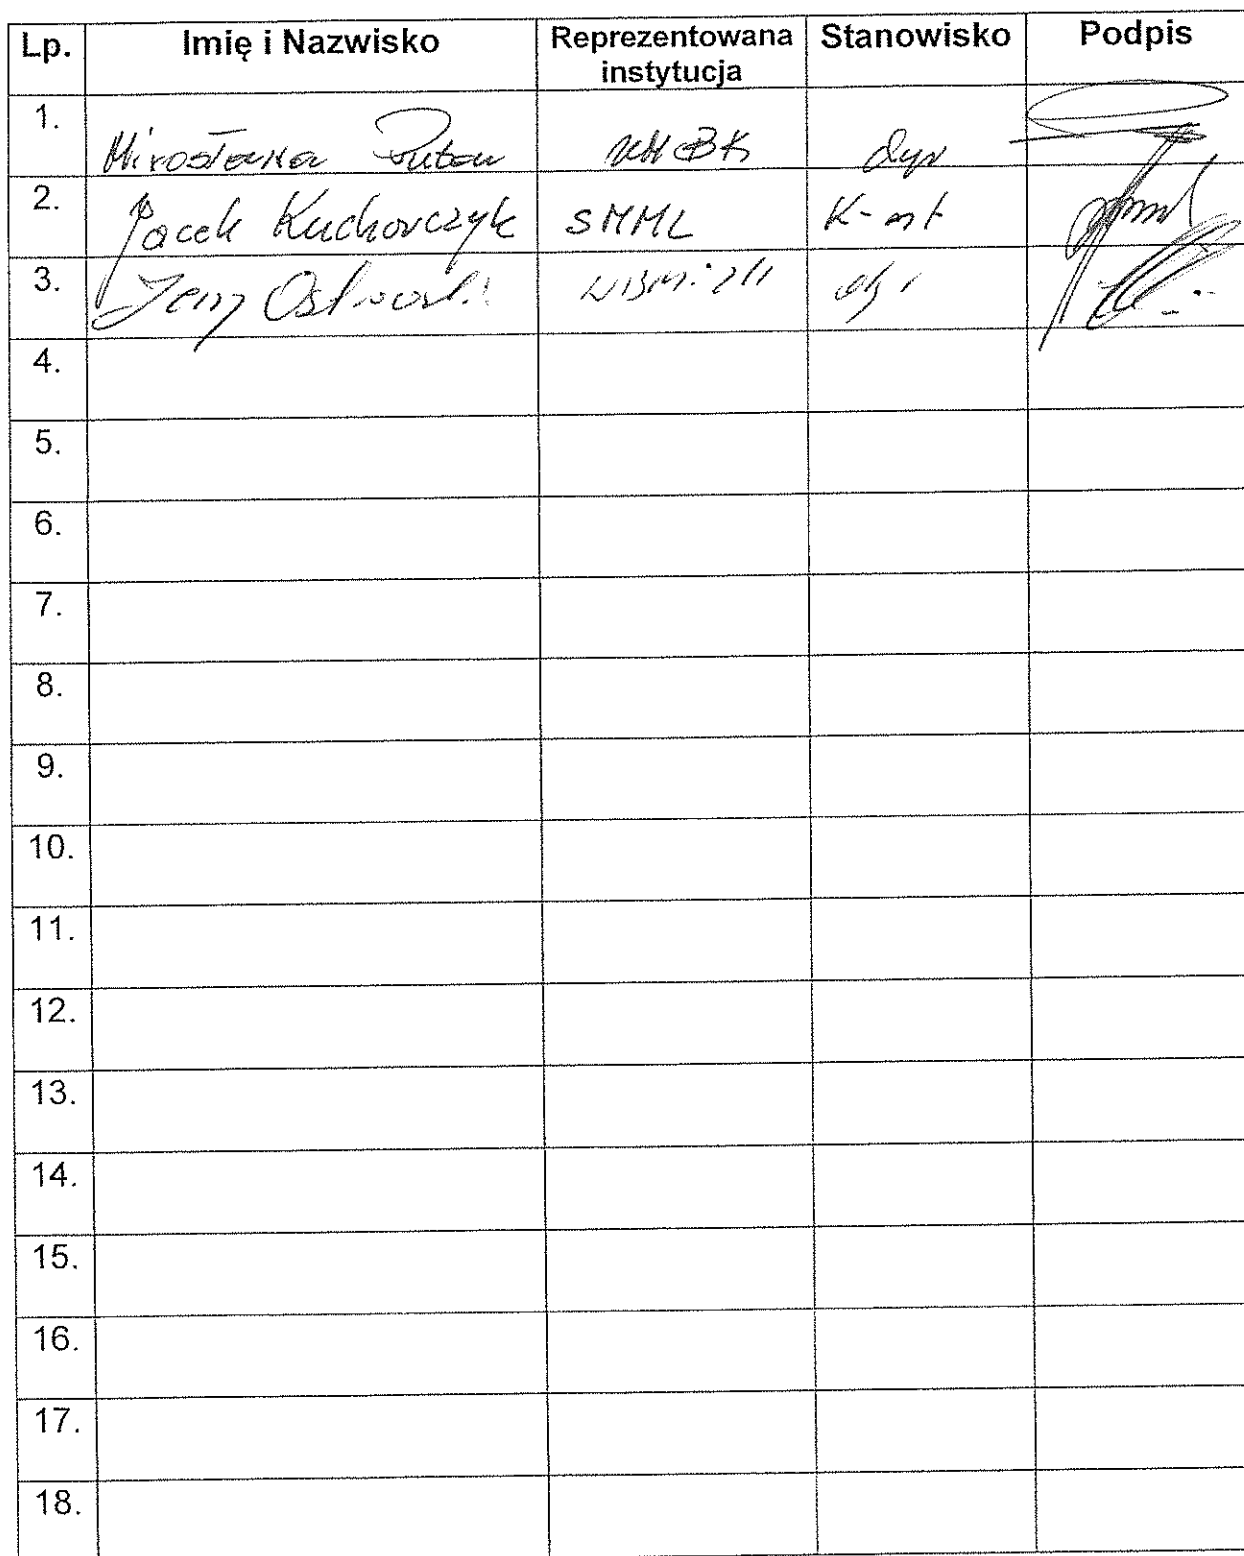 Lp. Imię i Nazwisko Reprezentowana instytucja Stanowisko Podpis
1. Mirosława dyr
2. Jacek Kucharczyk SMML K-nt
3. Jerzy Ostrowski
4.
5.
6.
7.
8.
9.
10.
11.
12.
13.
14.
15.
16.
17.
18.